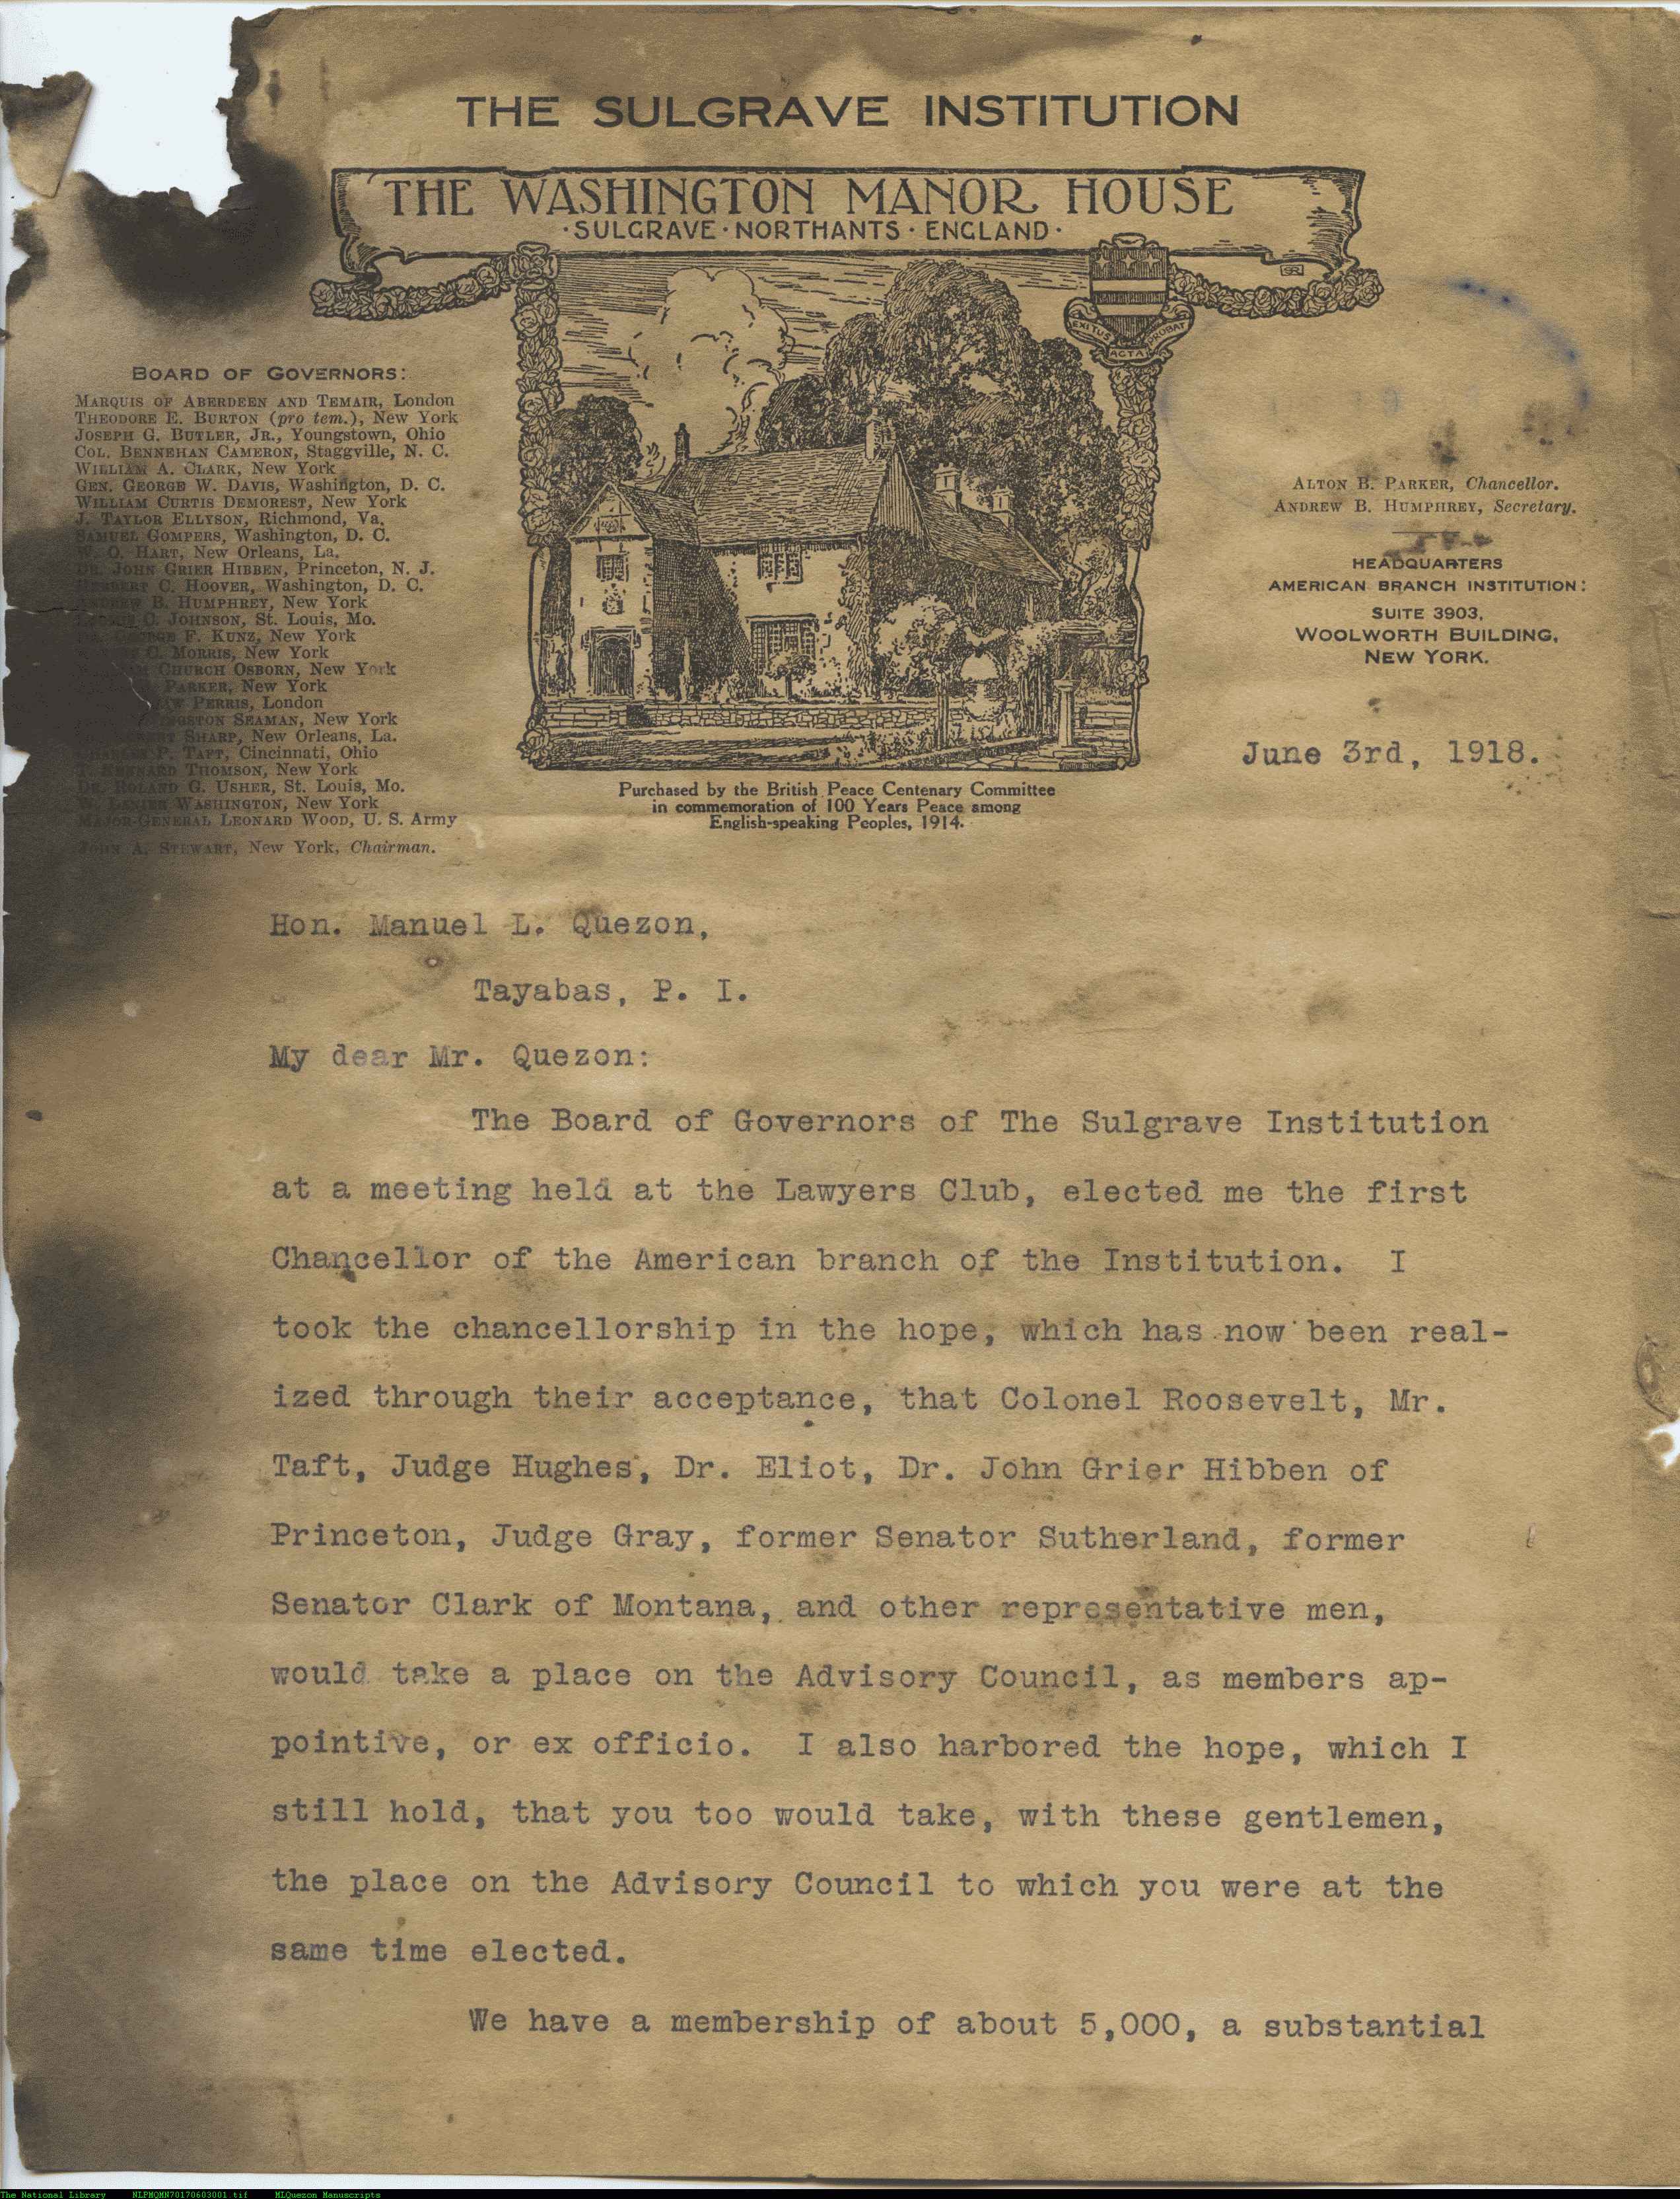 THE SULGRAVE INSTITUTION
THE WASHINGTON MANOR HOUSE
·SULGRAVE·NORTHANTS·ENGLAND·
EXITUS ACTA PROBAT
BOARD OF GOVERNORS:
MARQUIS OF ABERDEEN AND TEMAIR, London
THEODORE E. BURTON (pro tem.), New York
JOSEPH G. BUTLER, JR., Youngstown, Ohio
COL. BENNEHAN CAMERON, Staggville, N. C.
WILLIAM A. CLARK, New York
GEN. GEORGE W. DAVIS, Washington, D. C.
WILLIAM CURTIS DEMOREST, New York
J. TAYLOR ELLYSON, Richmond, Va.
SAMUEL GOMPERS, Washington, D. C.
W. O. HART, New Orleans, La.
DR. JOHN GRIER HIBBEN, Princeton, N. J.
HERBERT C. HOOVER, Washington, D. C.
ANDREW B. HUMPHREY, New York
O. JOHNSON, St. Louis, Mo.
GEORGE F. KUNZ, New York
O. MORRIS, New York
CHURCH OSBORN, New York
PARKER, New York
PERRIS, London
SEAMAN, New York
SHARP, New Orleans, La.
CHARLES P. TAFT, Cincinnati, Ohio
T. KENNARD THOMSON, New York
DR. ROLAND G. USHER, St. Louis, Mo.
LANIER WASHINGTON, New York
MAJOR-GENERAL LEONARD WOOD, U. S. Army
JOHN A. STEWART, New York, Chairman.
Purchased by the British Peace Centenary Committee
in commemoration of 100 Years Peace among
English-speaking Peoples, 1914.
ALTON B. PARKER, Chancellor.
ANDREW B. HUMPHREY, Secretary.
HEADQUARTERS
AMERICAN BRANCH INSTITUTION:
SUITE 3903,
WOOLWORTH BUILDING,
NEW YORK.
June 3rd, 1918.
Hon. Manuel L. Quezon,
Tayabas, P. I.
My dear Mr. Quezon:
The Board of Governors of The Sulgrave Institution
at a meeting held at the Lawyers Club, elected me the first
Chancellor of the American branch of the Institution. I
took the chancellorship in the hope, which has now been real-
ized through their acceptance, that Colonel Roosevelt, Mr.
Taft, Judge Hughes, Dr. Eliot, Dr. John Grier Hibben of
Princeton, Judge Gray, former Senator Sutherland, former
Senator Clark of Montana, and other representative men,
would take a place on the Advisory Council, as members ap-
pointive, or ex officio. I also harbored the hope, which I
still hold, that you too would take, with these gentlemen,
the place on the Advisory Council to which you were at the
same time elected.
We have a membership of about 5,000, a substantial
The National Library NLPMQMN70170603001.tif MLQuezon Manuscripts